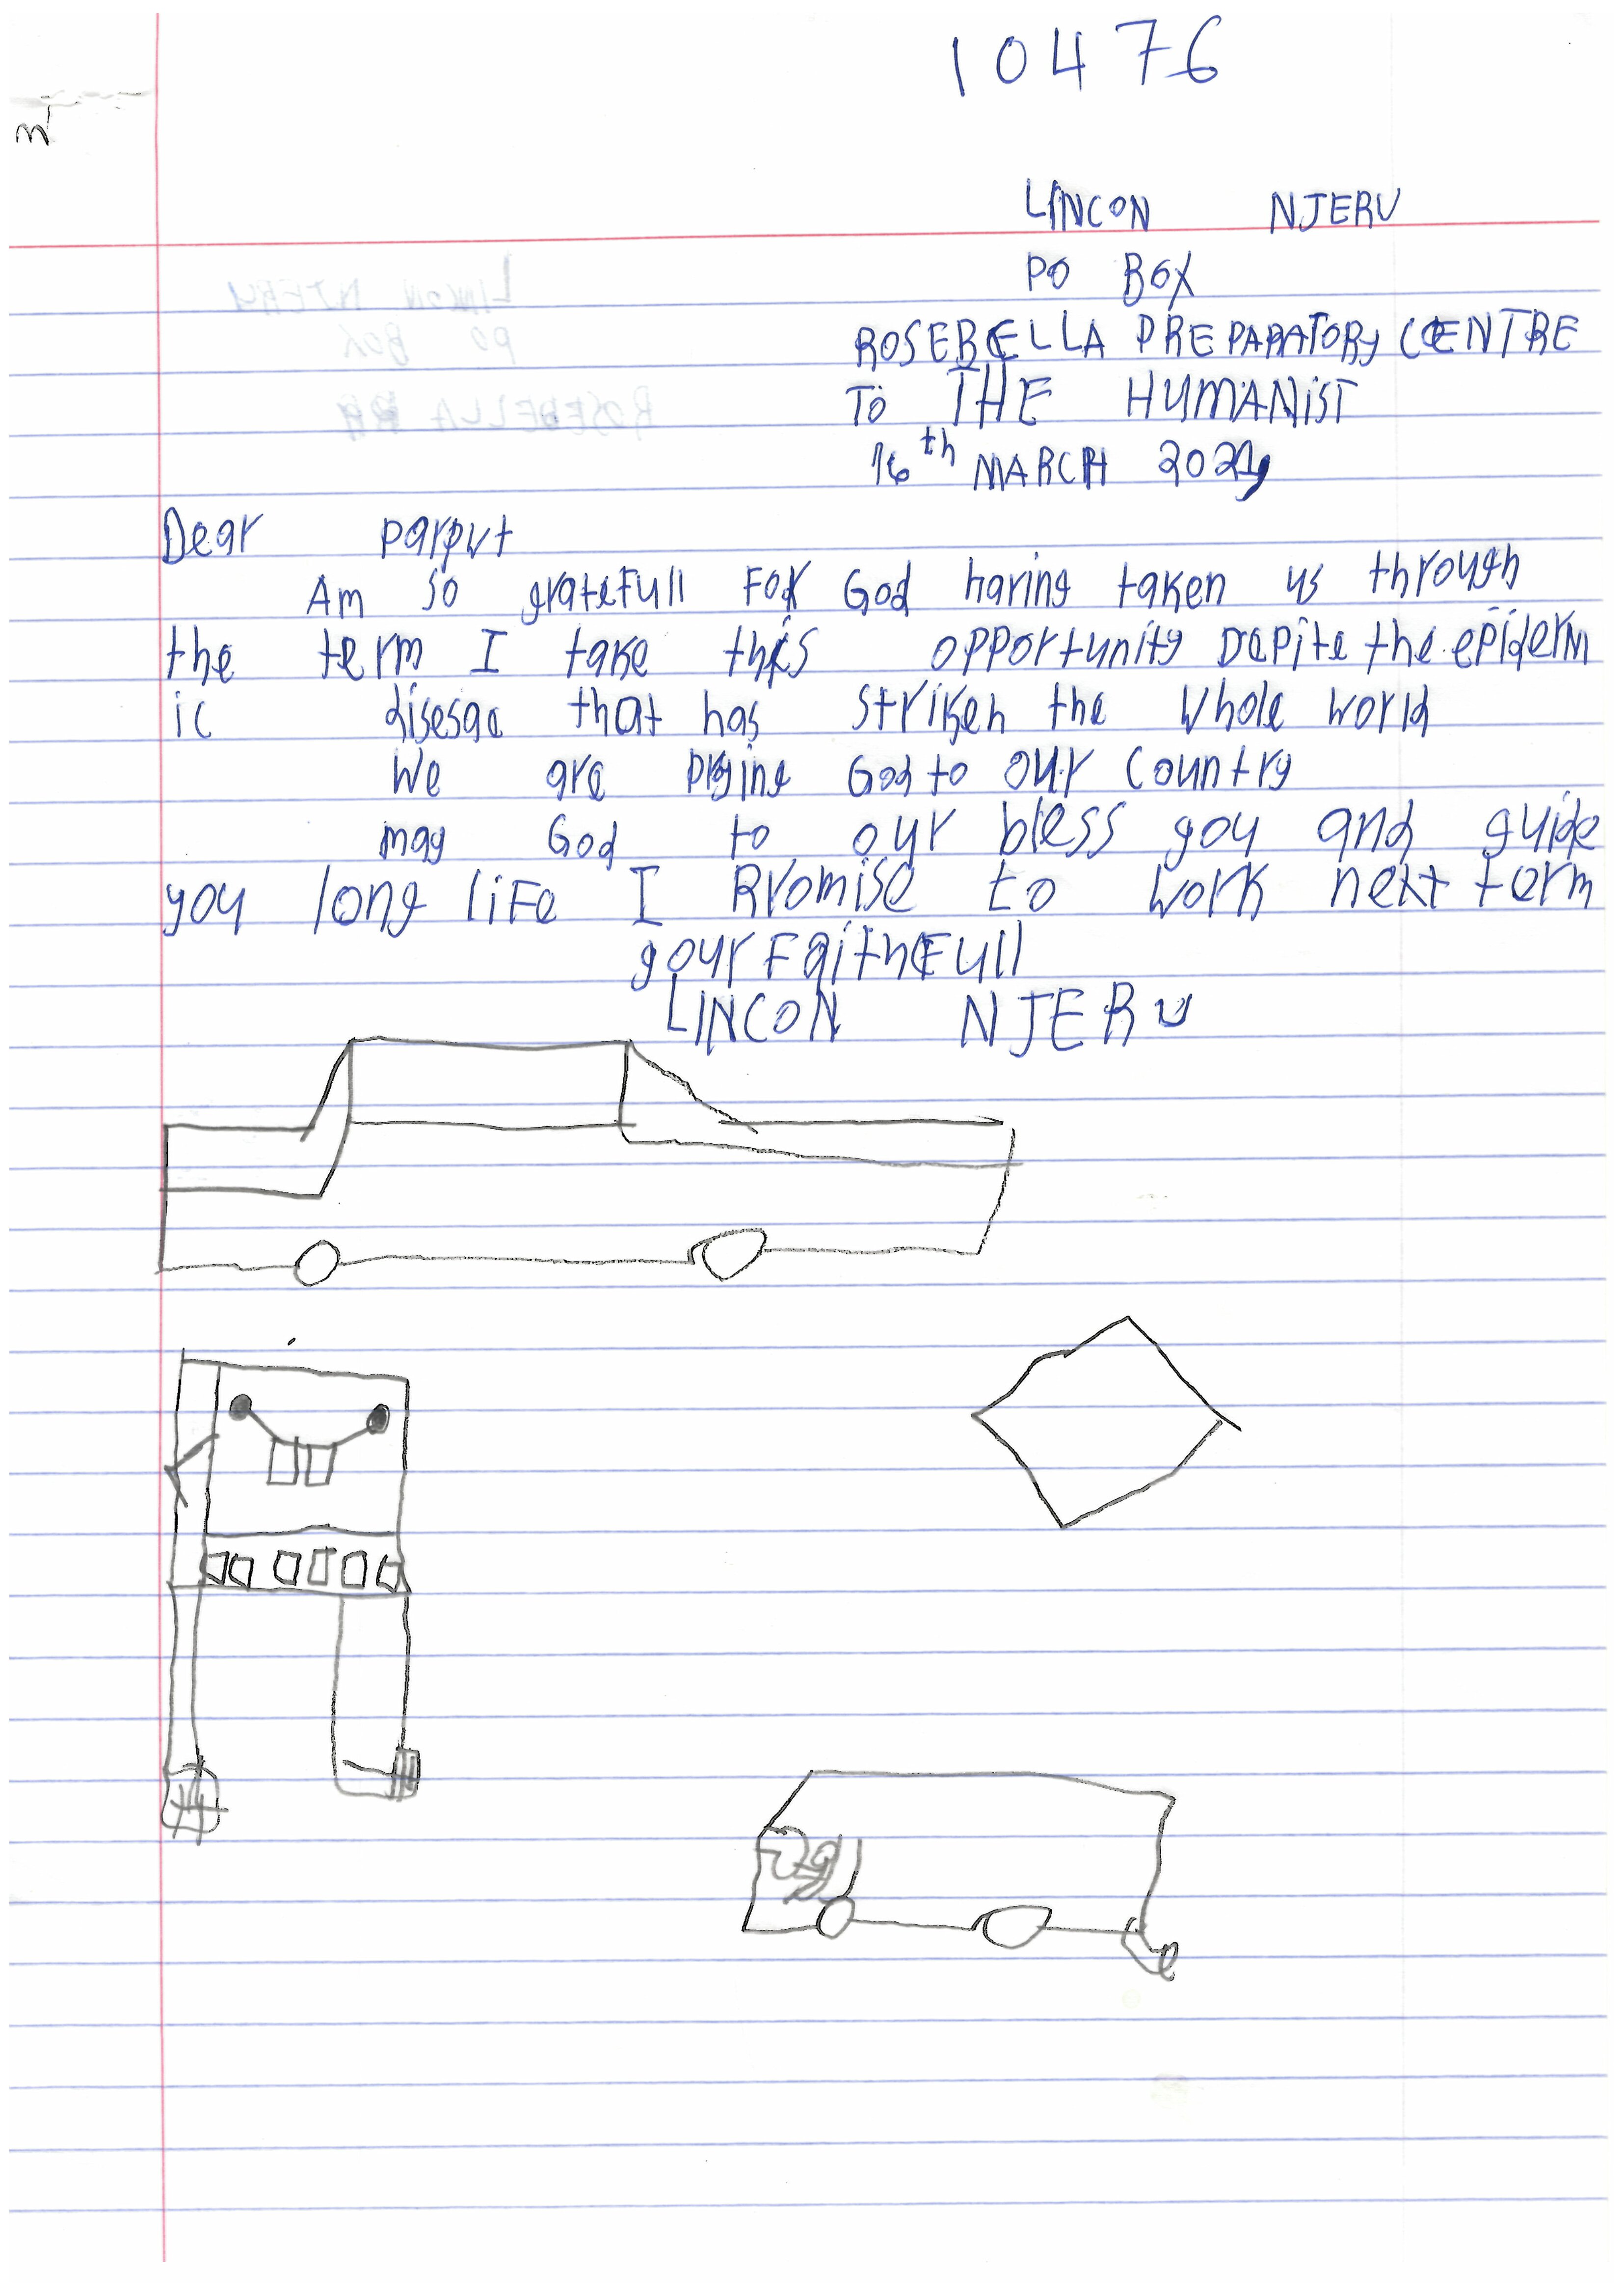 10476
LINCON NJERU
PO BOX
ROSEBELLA PREPARATORY CENTRE
TO THE HUMANIST
16th MARCH 2021,
Dear parput
Am so gratefull For God having taken us through
the term I take this opportunity Depite the epiderm
ic disesae that has striken the whole world
We are prying God to our country
may God to our bless you and guide
you long life I Promise to work next term
your Faithfull
LINCON NJERU